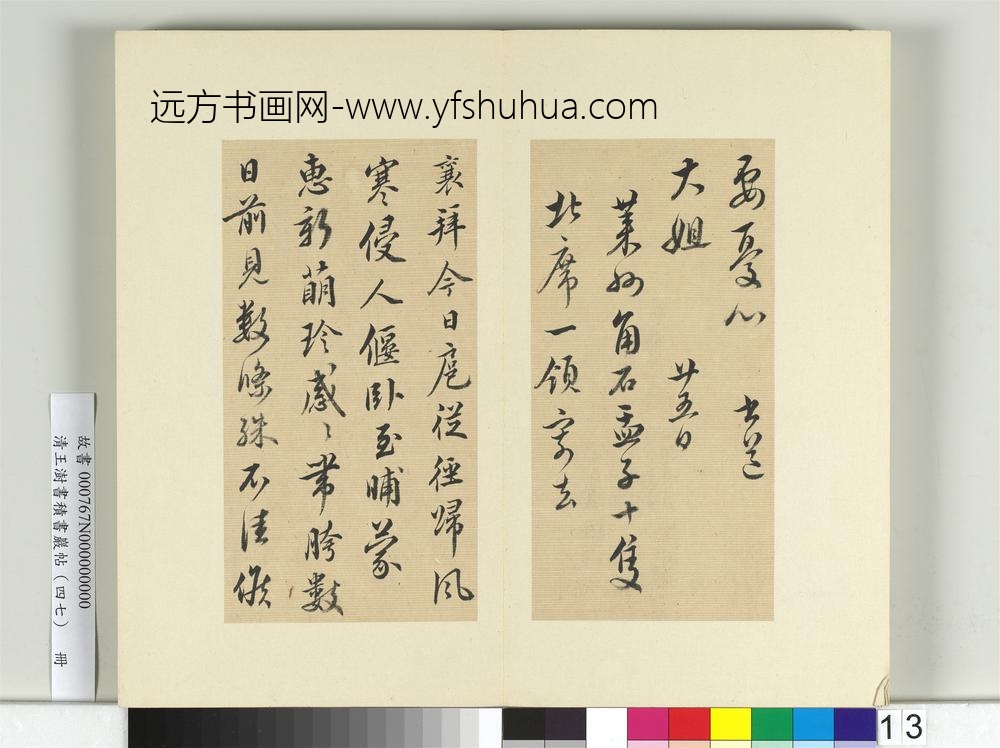 远方书画网-www.yfshuhua.com
要憂心 書送
大姐 廿五日
萊州角石盂子十隻
北席一領寄去
襄拜今日扈從徑歸風
寒侵人偃臥至晡蒙
惠新萌珍感〻帶胯數
日前見數條殊不佳候
故書 000767N000000000
清王澍書積書巖帖（四七） 冊
13